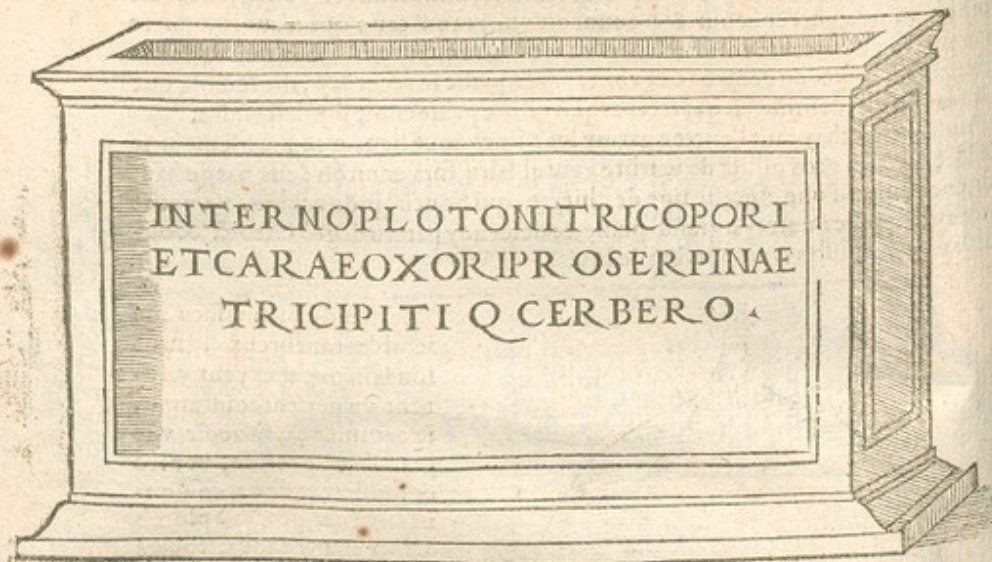 INTERNOPLOTONITRICOPORI
ETCARAEOXORIPROSERPINAE
TRICIPITI Q CERBERO.